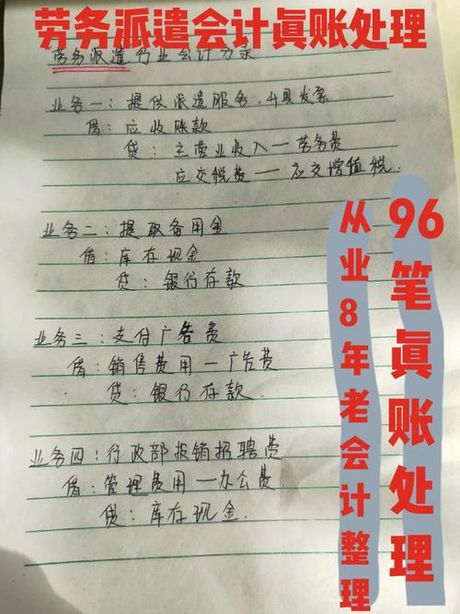 劳务派遣会计真账处理
劳务派遣行业会计分录
业务一：提供派遣服务，开具发票
借：应收账款
贷：主营业收入一劳务费
应交税费一应交增值税.
业务二：提取备用金
借：库存现金
贷：银行存款
业务三：支付广告费
借：销售费用一广告费
贷：银行存款.
业务四：行政部报销招聘费
借：管理费用一办公费
贷：库存现金.
96笔真账处理
从业8年老会计整理